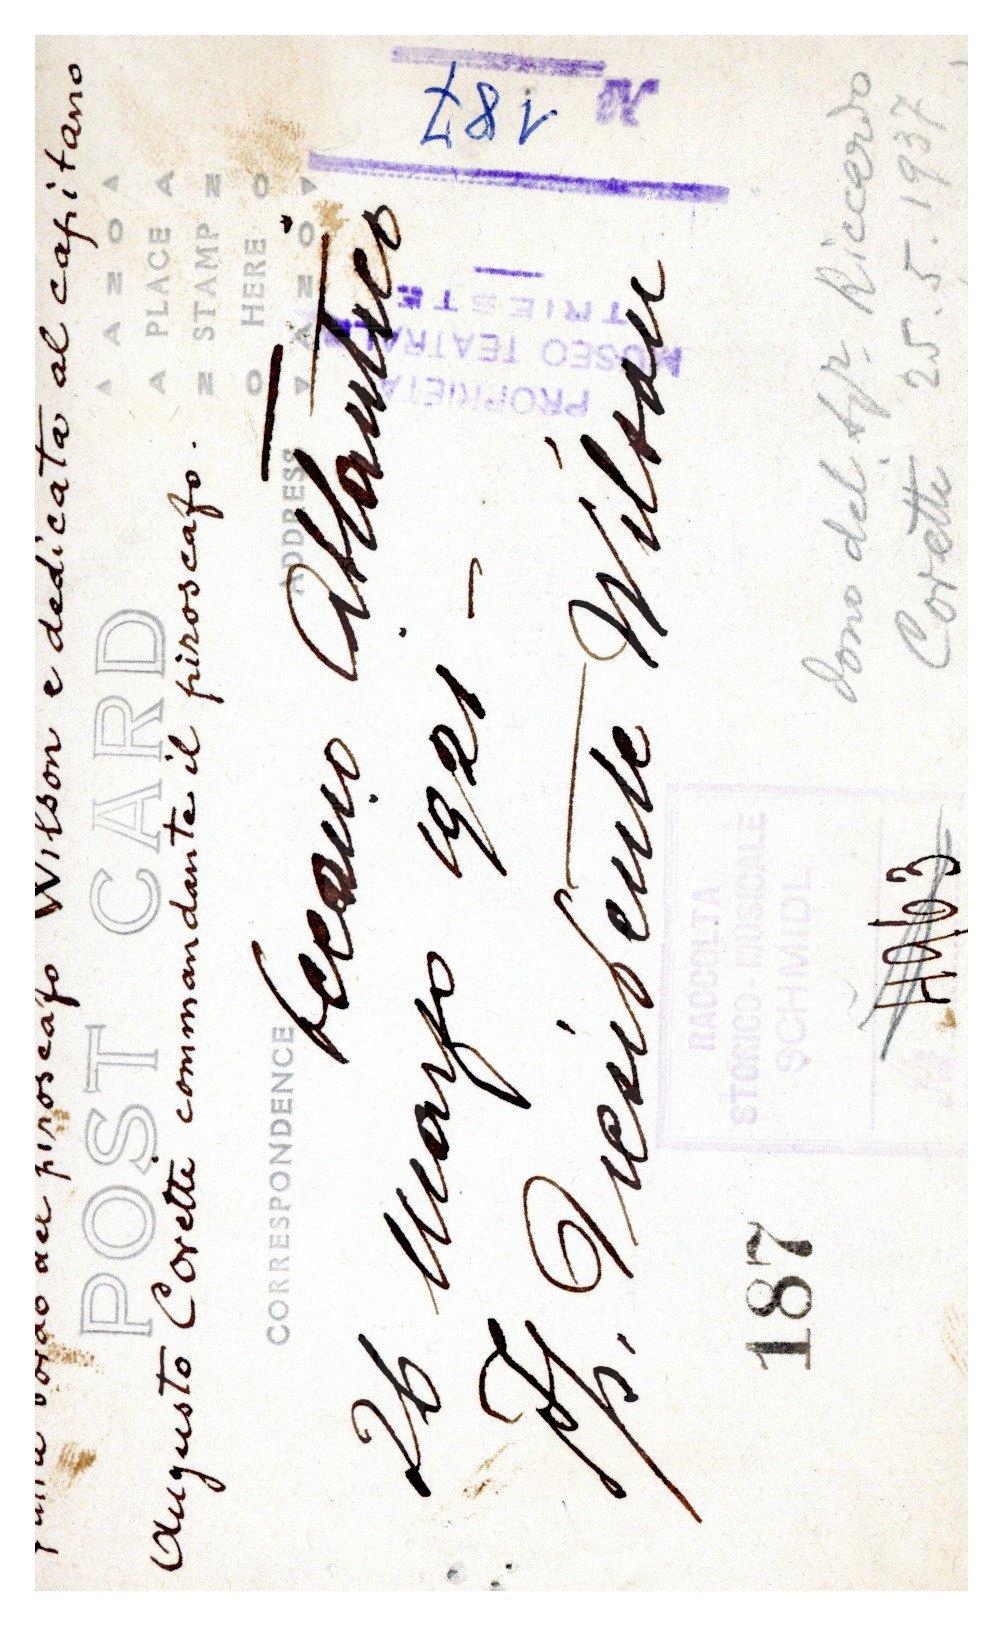 bordo del piroscafo Wilson e dedicata al capitano
Augusto Coretti commandante il piroscafo.
POST CARD
CORRESPONDENCE
ADDRESS
PLACE
STAMP
HERE
AZO
AZO
Oceano Atlantico
26 Marzo 1921 –
Sp. Presidente Wilson
PROPRIETÀ
MUSEO TEATRALE
TRIESTE
No 187
RACCOLTA
STORICO-MUSICALE
SCHMIDL
187
dono del Riccardo
Coretti 25.5.1937